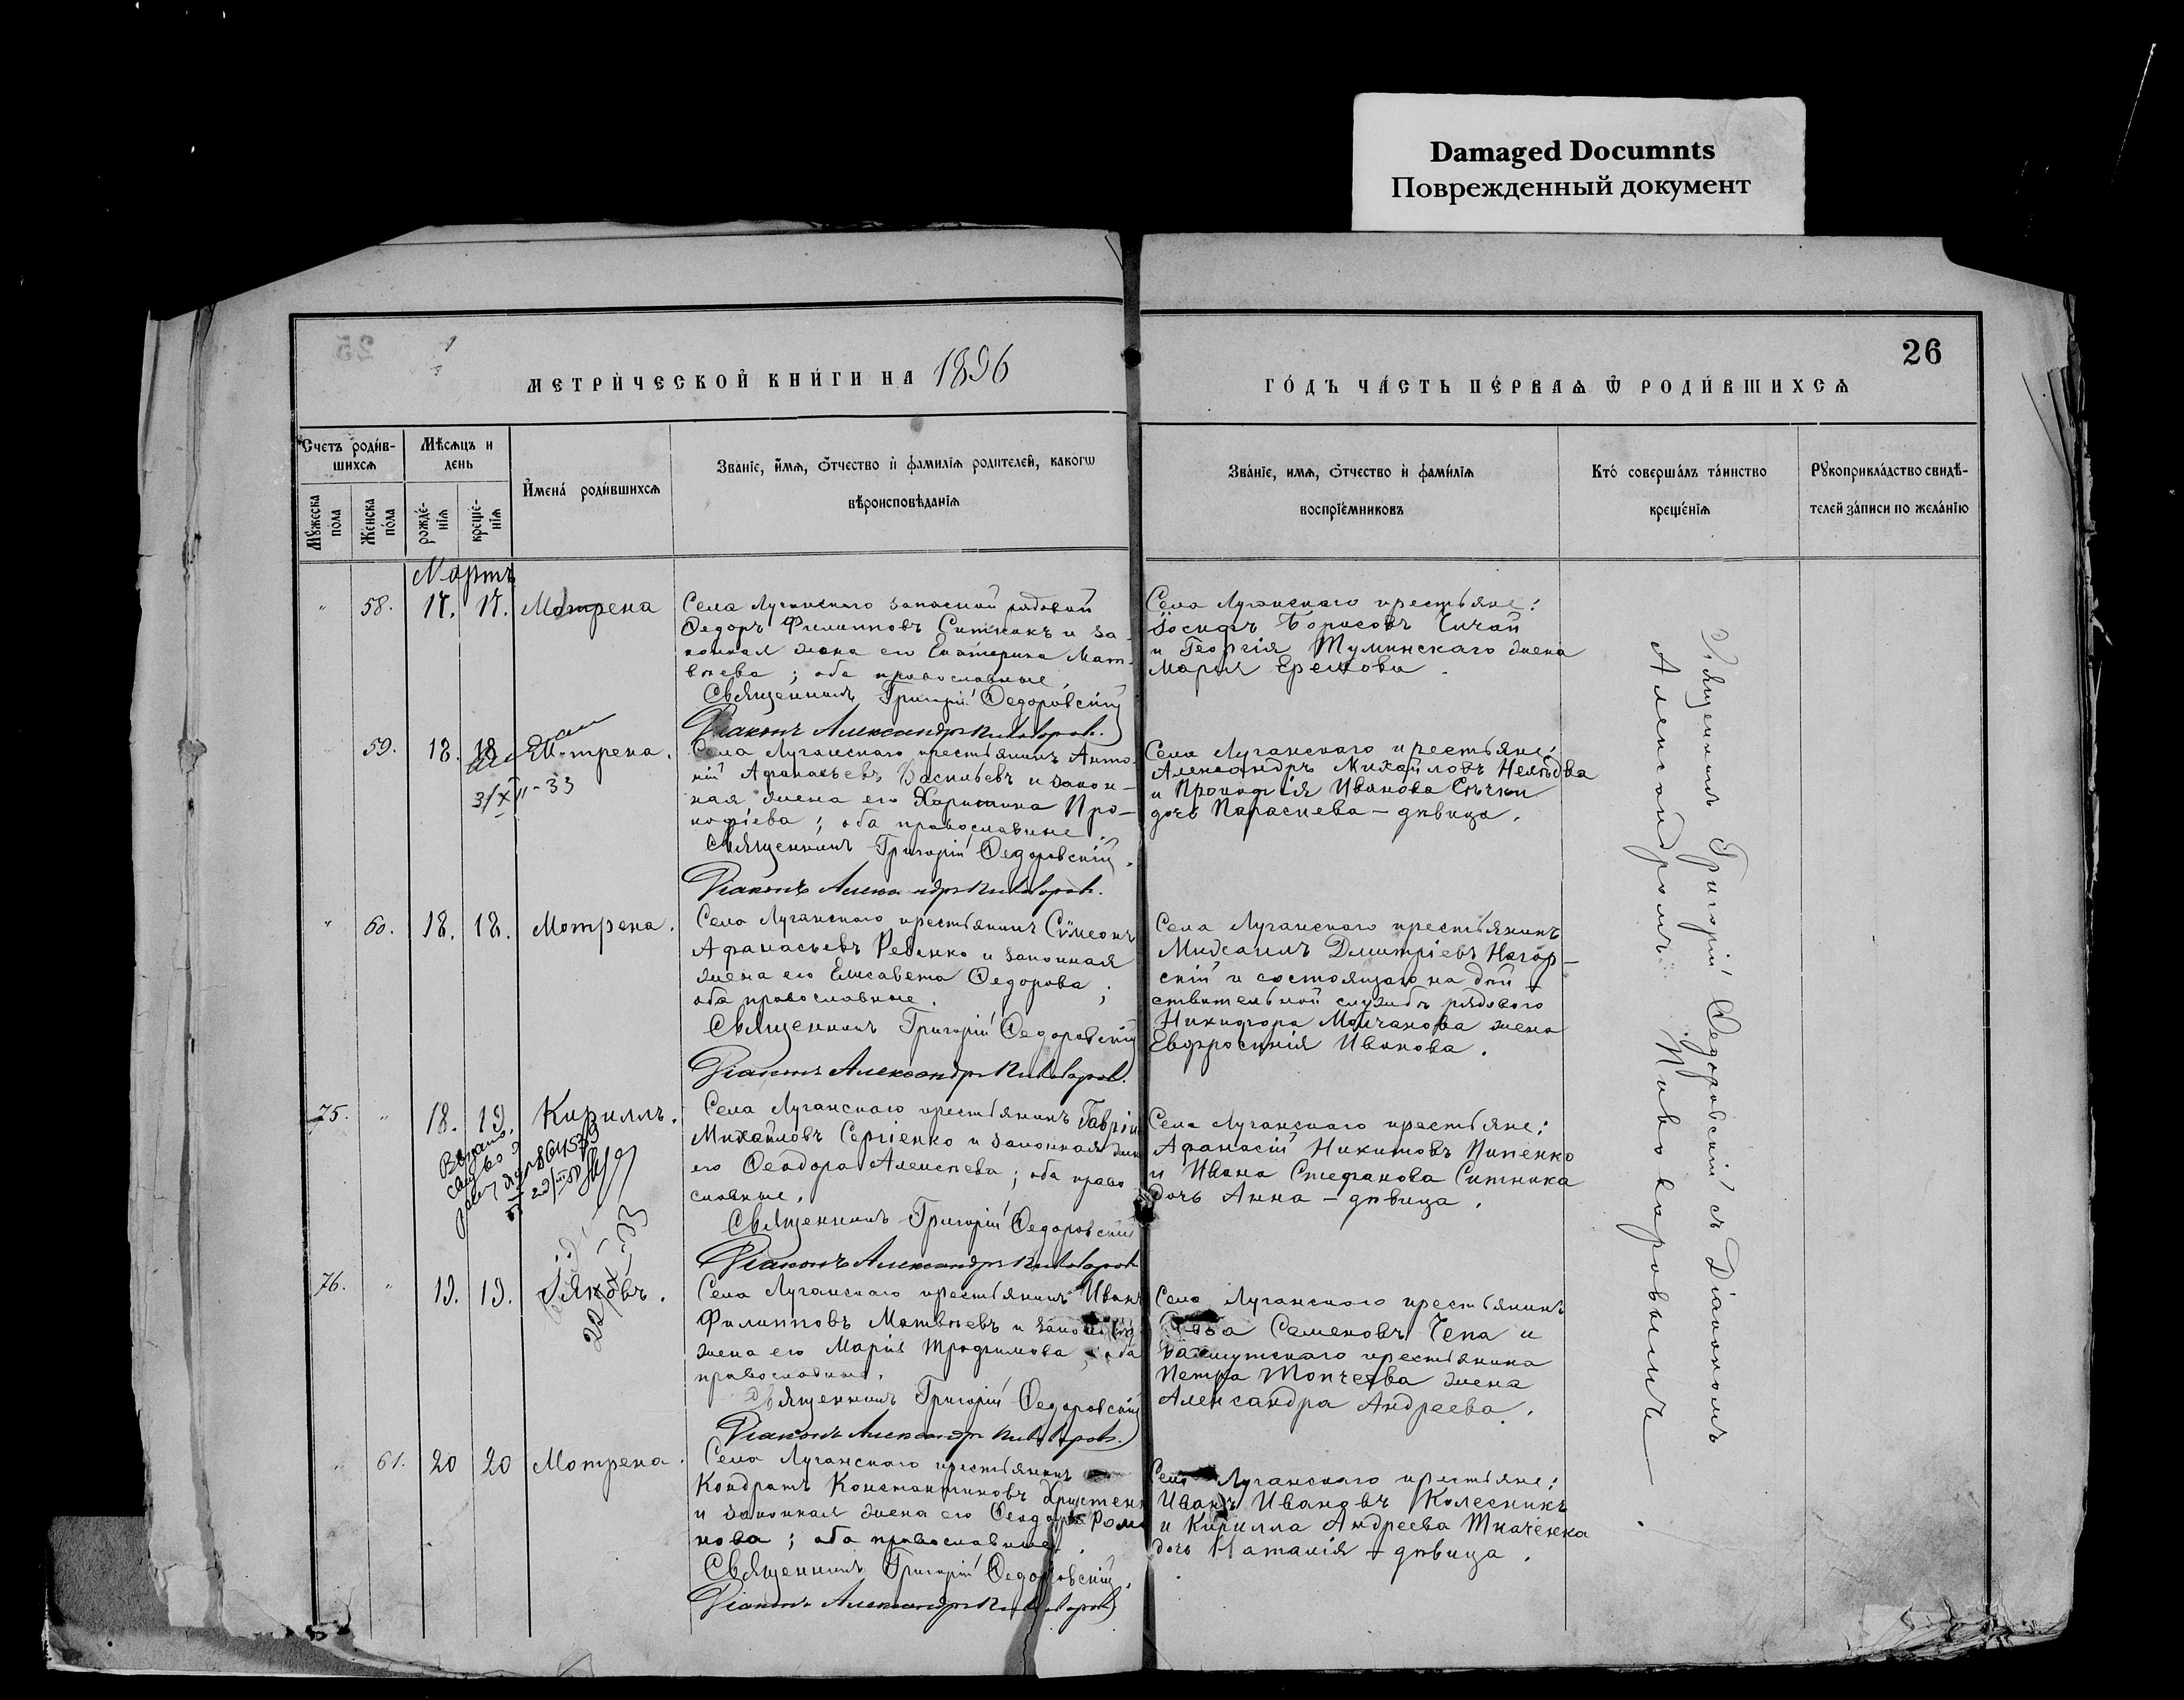 Damaged Documnts
Поврежденный документ
26
МЕТРИ́ЧЕСКОЙ КНИ́ГИ НА 1896
ГО́ДЪ ЧА́СТЬ ПЕ́РВАѦ Ѿ РОДИ́ВШИХСѦ
Счетъ роди́в-
шихсѧ
Мѣсѧцъ и
день
И҆мена́ роди́вшихсѧ
Зва́нїе, и҆́мѧ, ѻ҆́тчество и҆ фамилїѧ родителей, какогѡ
вѣроисповѣданїѧ
Зва́нїе, имѧ, ѻ҆́тчество и҆ фами́лїѧ
воспрїе́мниковъ
Кто́ соверша́лъ та́инство
креще́нїѧ
Рꙋкоприкла́дство свидѣ́-
телей за́писи по жела́нїю
Мꙋжеска
по́ла
Же́нска
по́ла
рожде́-
нїѧ
креще́-
нїѧ
Мартъ
" 58. 17. 17. Мотрена
Села Луганскаго запасной рядовой
Ѳедоръ Филипповъ Ситникъ и за-
конная жена его Екатерина Мат-
вѣева; оба православные.
Священникъ Григорій Ѳедоровскій
Діаконъ Александръ Пивоваровъ.
Села Луганскаго крестьяне:
Іосифъ Борисовъ Чичай
и Георгія Туминскаго жена
Марія Еремова.
59. 18. 18. Мотрена.
31/XII-33
Села Луганскаго крестьянинъ Анто-
ній Афанасьевъ Васильевъ и закон-
ная жена его Харитина Про-
кофіева; оба православные.
Священникъ Григорій Ѳедоровскій.
Діаконъ Александръ Пивоваровъ.
Села Луганскаго крестьяне:
Александръ Михайловъ
и Прокофія Иванова
дочь Параскева - дѣвица.
" 60. 18. 18. Мотрена.
Села Луганскаго крестьянинъ Сѵмеонъ
Афанасьевъ Ревенко и законная
жена его Елисавета Ѳедорова;
оба православные.
Священникъ Григорій Ѳедоровскій
Діаконъ Александръ Пивоваровъ.
Села Луганскаго крестьянинъ
Мисаилъ Дмитріевъ Нагор-
скій и состоящаго на дѣй-
ствительной службѣ рядового
Никифора Молчанова жена
Евфросинія Иванова.
75. " 18. 19. Кириллъ.
Села Луганскаго крестьянинъ Гаврій
Михайловъ Сергіенко и законная жена
его Ѳеодора Алексѣева; оба право
славные.
Священникъ Григорій Ѳедоровскій
Діаконъ Александръ Пивоваровъ
Села Луганскаго крестьяне:
Афанасій Никитовъ Пипенко
и Ивана Стефанова Ситника
дочь Анна - дѣвица.
76. " 19. 19. Іяковъ.
Села Луганскаго крестьянинъ Иванъ
Филипповъ Матвѣевъ и законная
жена его Марія Трофимова; оба
православные.
Священникъ Григорій Ѳедоровскій
Діаконъ Александръ Пивоваровъ.
Села Луганскаго крестьянинъ
Семеновъ Чепа и
Бахмутскаго крестьянина
Петра Топчеева жена
Александра Андреева.
61. 20 20 Мотрена.
Села Луганскаго крестьянинъ
Кондратъ Константиновъ
и законная жена его Ѳеодора Рома
нова; оба православные.
Священникъ Григорій Ѳедоровскій.
Діаконъ Александръ Пивоваровъ
Села Луганскаго крестьяне:
Иванъ Ивановъ Колесникъ
и Кирилла Андреева Ткаченка
дочь Наталія - дѣвица.
Священникъ Григорій Ѳедоровскій съ Діакономъ
Александромъ Пивоваровымъ